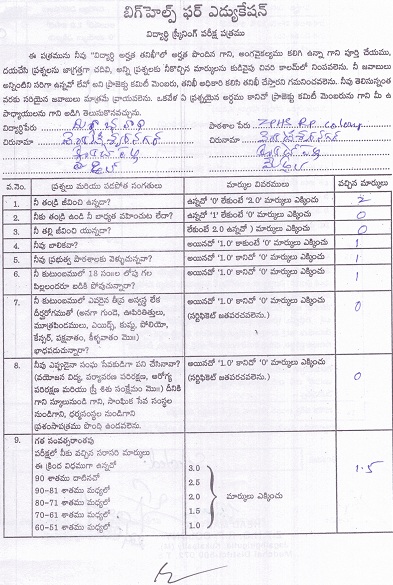 బిగ్‌హెల్ప్ ఫర్ ఎడ్యుకేషన్
విద్యార్థి స్క్రీనింగ్ పరీక్ష పత్రము
ఈ పత్రమును నీవు "విద్యార్థి అర్హత తనిఖీ"లో అర్హత పొందిన గాని, అంగవైకల్యము కలిగి ఉన్నా గాని పూర్తి చేయుము,
దయచేసి ప్రశ్నలను జాగ్రత్తగా చదివి, అన్ని ప్రశ్నలకు నీకొచ్చిన మార్కులను కుడివైపు చివరి కాలమ్‌లో నింపవలెను. నీ జవాబులు
అన్నింటిని సరిగ్గా ఉన్నవో లేవో అని ప్రాజెక్టు కమిటీ మెంబరు, తనిఖీ అధికారి కలిసి తనిఖీ చేస్తారని గమనించవలెను. నీవు తెలిసినంత
వరకు సరియైన జవాబులు మాత్రమే వ్రాయవలెను. ఒకవేళ ఏ ప్రశ్నయైన అర్థము కానిచో ప్రాజెక్టు కమిటీ మెంబరును గాని మీ ఉ
పాధ్యాయులను గాని అడిగి తెలుసుకొనవచ్చును.
విద్యార్థిపేరు పాఠశాల పేరు ZPHS R.P. colony
చిరునామా చిరునామా
వ.నెం. ప్రశ్నలు మరియు సదరహిత సంగతులు మార్కుల వివరములు వచ్చిన మార్కులు
1. నీ తండ్రి జీవించి ఉన్నదా? ఉన్నచో '0' లేకుంటే '2.0' మార్కులు ఎక్కించు 2
2. నీకు తండ్రి ఉండి నీ బాధ్యత వహించుట లేదా? ఉన్నచో '1' లేకుంటే '0' మార్కులు ఎక్కించు 0
3. నీ తల్లి జీవించి యున్నదా? లేకుంటే 2.0 ఉన్నచో ) మార్కులు ఎక్కించు 0
4. నీవు బాలికవా? అయినచో '1.0' కాకుంటే '0' మార్కులు ఎక్కించు 1
5. నీవు ప్రభుత్వ పాఠశాలకు వెళ్ళుచున్నవా? అయినచో '1.0' కానిచో '0' మార్కులు ఎక్కించు 1
6. నీ కుటుంబములో 18 సం॥ల లోపు గల అయినచో '1.0' కానిచో '0' మార్కులు ఎక్కించు 1
పిల్లలందరూ బడికి పోవుచున్నారా?
7. నీ కుటుంబములో ఎవరైన తీవ్ర అస్వస్థ లేక అయినచో '1.0' కానిచో '0' మార్కులు ఎక్కించు 0
దీర్ఘరోగముతో (అనగా గుండె, ఊపిరితిత్తులు, (సర్టిఫికెట్ జతపరచవలెను.)
మూత్రపిండములు, ఎయిడ్స్, కుష్ఠు, పోలియో,
కేన్సర్, పక్షవాతం, కీళ్ళవాతం మొ॥)
బాధపడుచున్నారా?
8. నీవు ఎప్పుడైనా సంఘ సేవకుడిగా పని చేసినావా? అయినచో '1.0' కానిచో '0' మార్కులు ఎక్కించు 0
(వయోజన విద్య, పర్యావరణ పరిరక్షణ, ఆరోగ్య (సర్టిఫికెట్ జతపరచవలెను.)
పరిరక్షణ మరియు స్త్రీ శిశు సంక్షేమం మొ॥) దీనికి
గాని స్కూలునుండి గాని, సాంఘిక సేవ సంస్థల
నుండిగాని, ధర్మసంస్థల నుండిగాని
ప్రశంసాపత్రము పొంది ఉండవలెను.
9. గత సంవత్సరాంతపు
పరీక్షలో నీకు వచ్చిన సరాసరి మార్కులు
ఈ క్రింద విధముగా ఉన్నచో 3.0 1.5
90 శాతము దాటినచో 2.5
90-81 శాతము మధ్యలో 2.0 మార్కులు ఎక్కించు
80-71 శాతము మధ్యలో 1.5
70-61 శాతము మధ్యలో 1.0
60-51 శాతము మధ్యలో